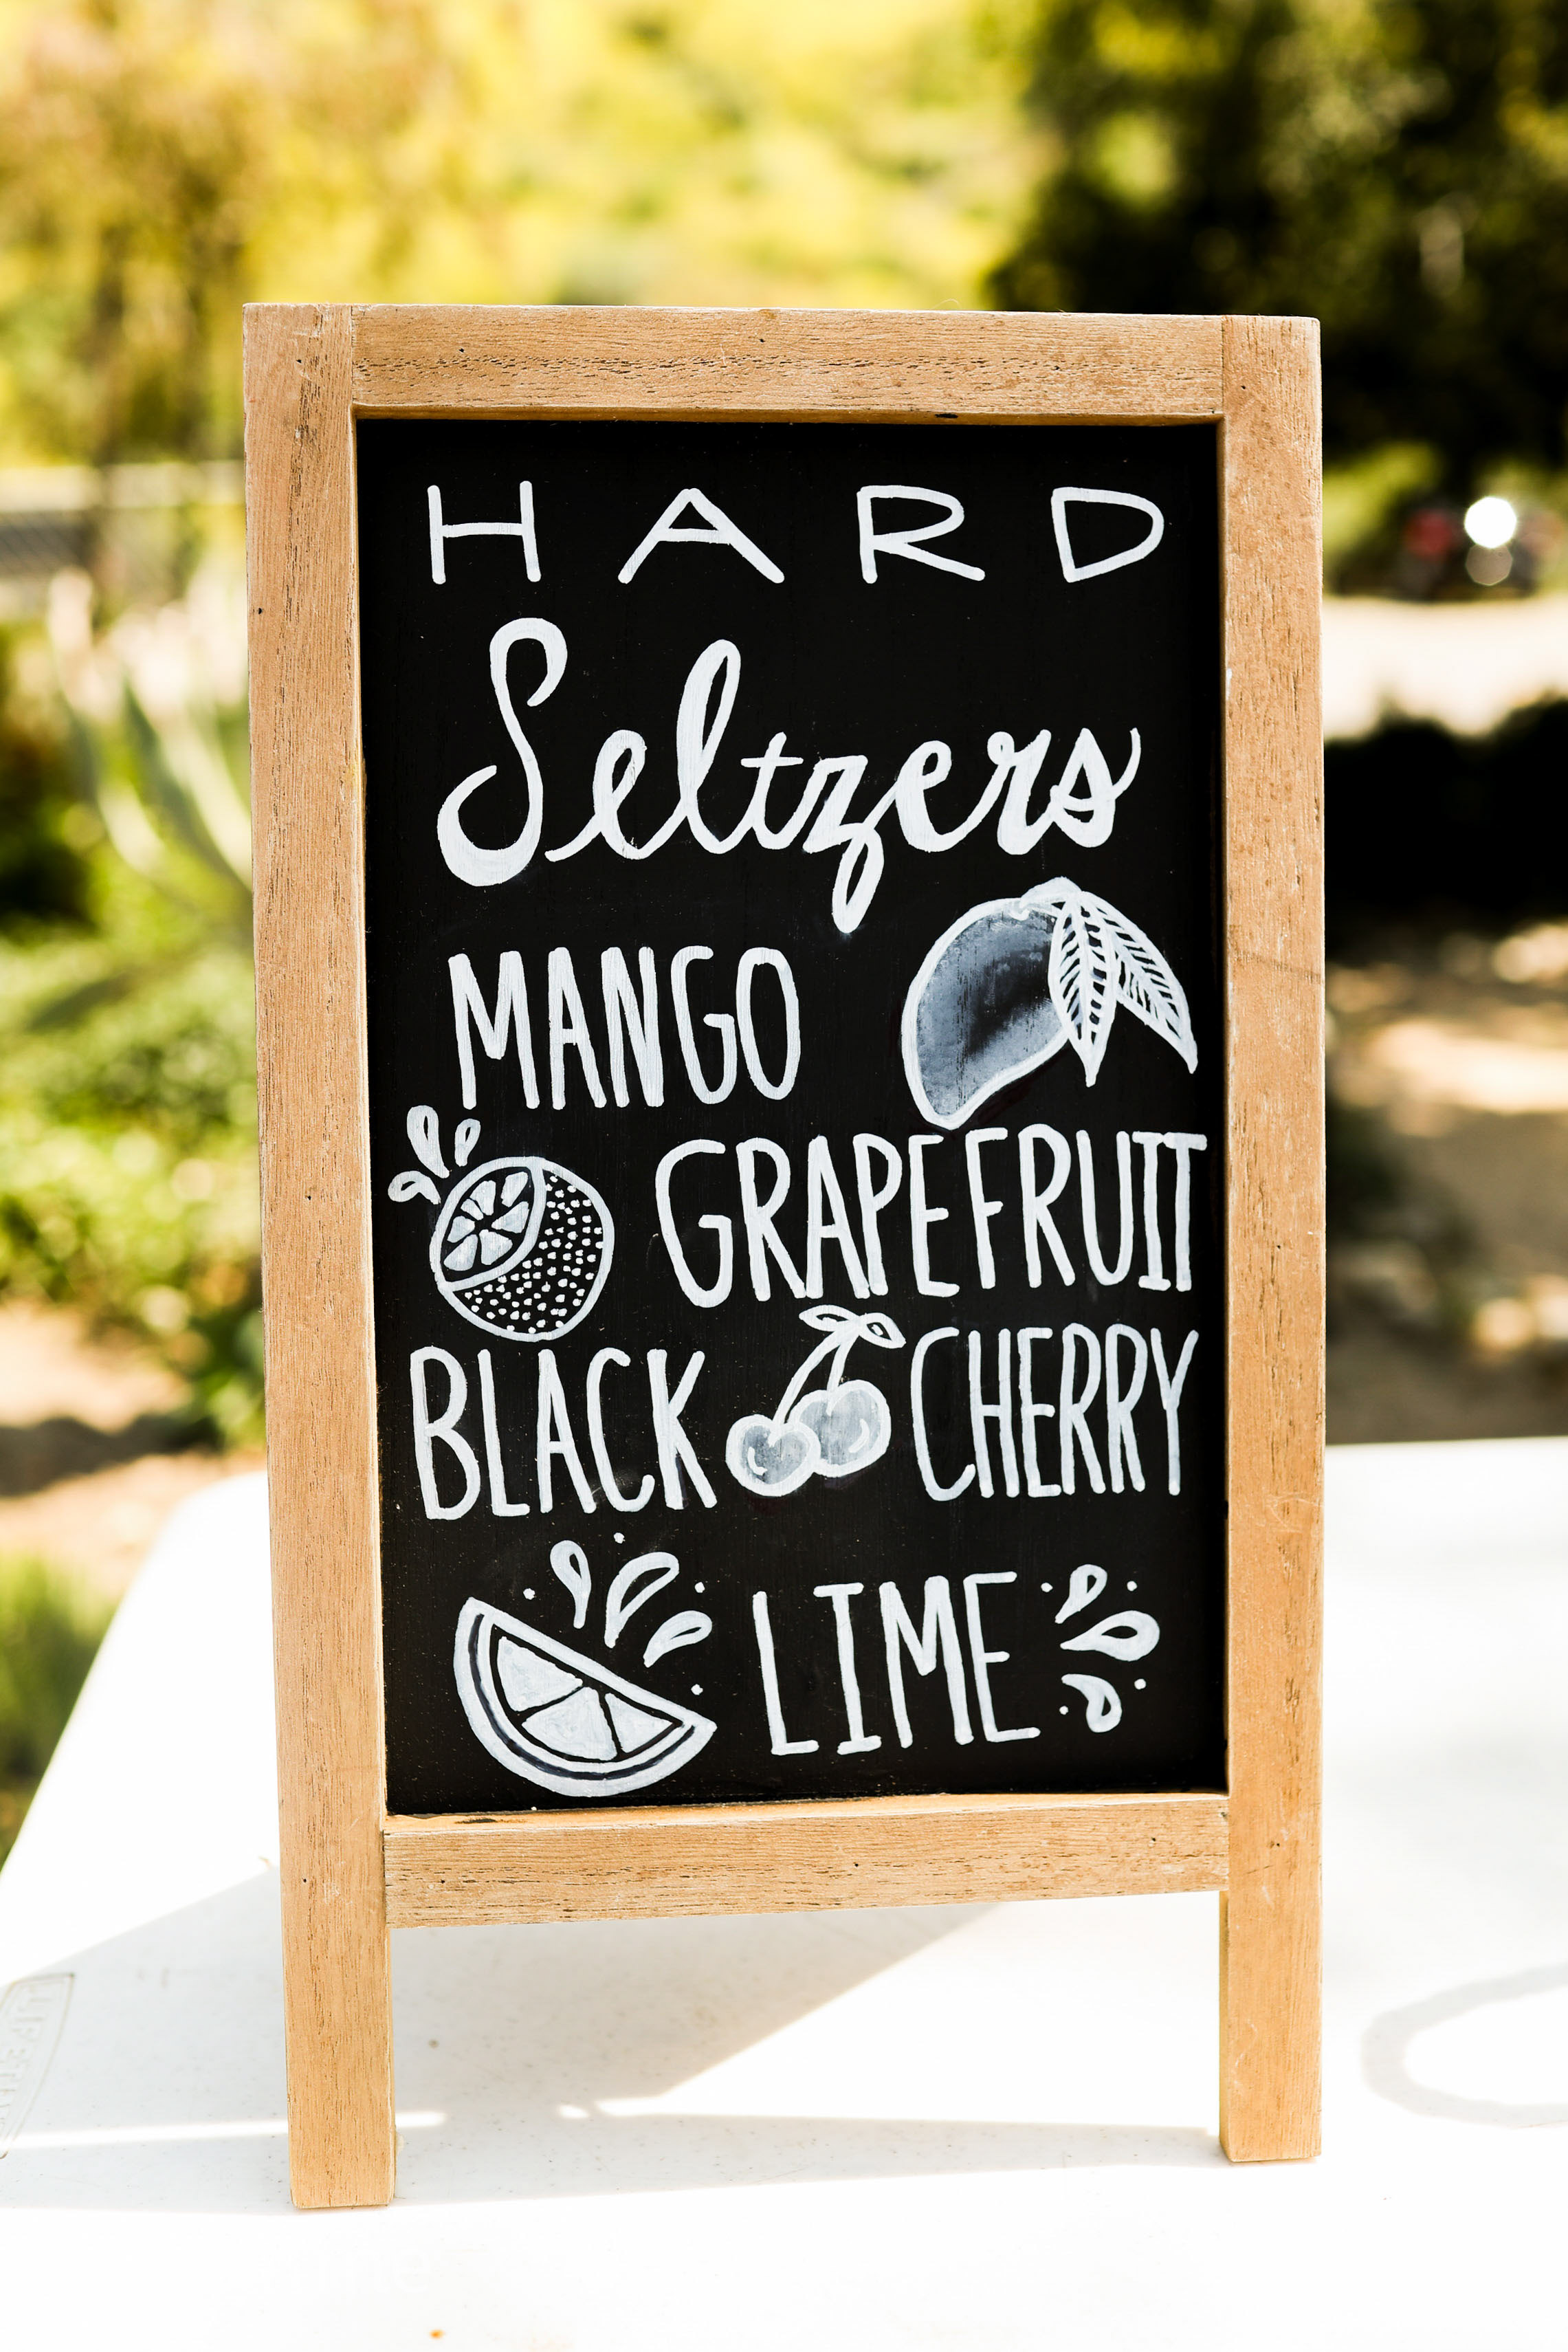 HARD
Seltzers
MANGO
GRAPEFRUIT
BLACK CHERRY
LIME
LIFETIME